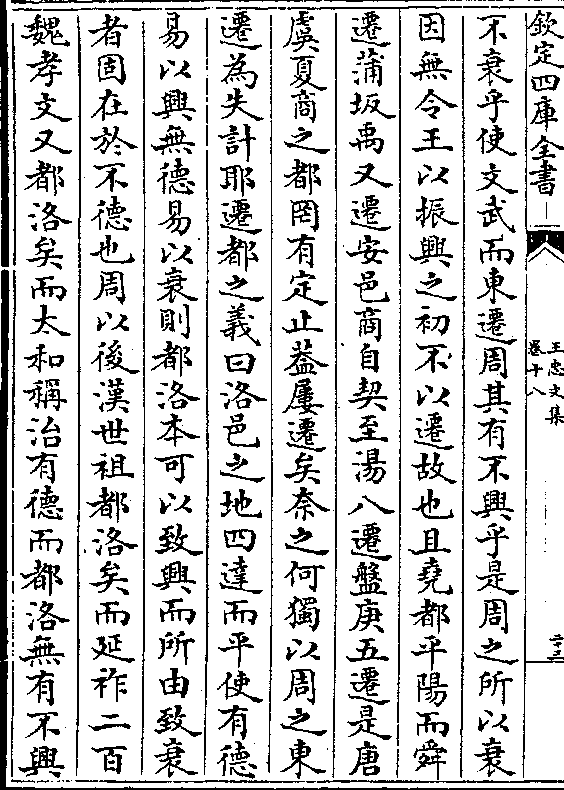 欽定四庫全書
王忠文集
卷十八
二十三
不衰乎使文武而東遷周其有不興乎是周之所以衰
因無令王以振興之初不以遷故也且堯都平陽而舜
遷蒲坂禹又遷安邑商自契至湯八遷盤庚五遷是唐
虞夏商之都罔有定止葢屢遷矣奈之何獨以周之東
遷為失計耶遷都之義曰洛邑之地四達而平使有德
易以興無德易以衰則都洛本可以致興而所由致衰
者固在於不德也周以後漢世祖都洛矣而延祚二百
魏孝文又都洛矣而太和稱治有德而都洛無有不興